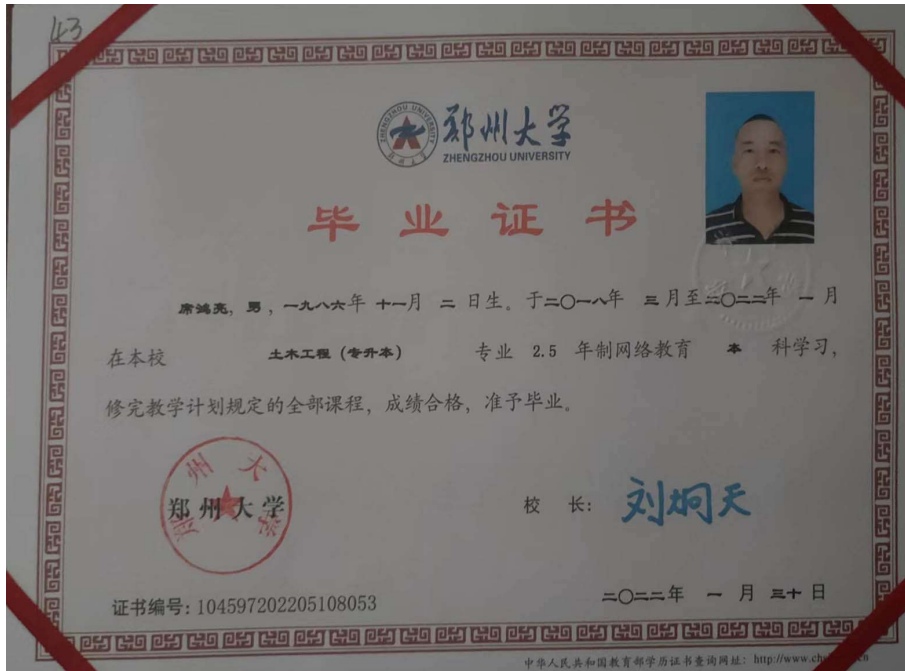 43
郑州大学
ZHENGZHOU UNIVERSITY
毕业证书
席鸿亮，男，一九八六年 十一月 二 日生。于二〇一八年 三月至二〇二二年 一 月
在本校 土木工程（专升本） 专业 2.5 年制网络教育 本 科学习，
修完教学计划规定的全部课程，成绩合格，准予毕业。
郑州大学
郑州大学
校 长： 刘炯天
证书编号：104597202205108053
二〇二二年 一 月 三十 日
中华人民共和国教育部学历证书查询网址：http://www.ch